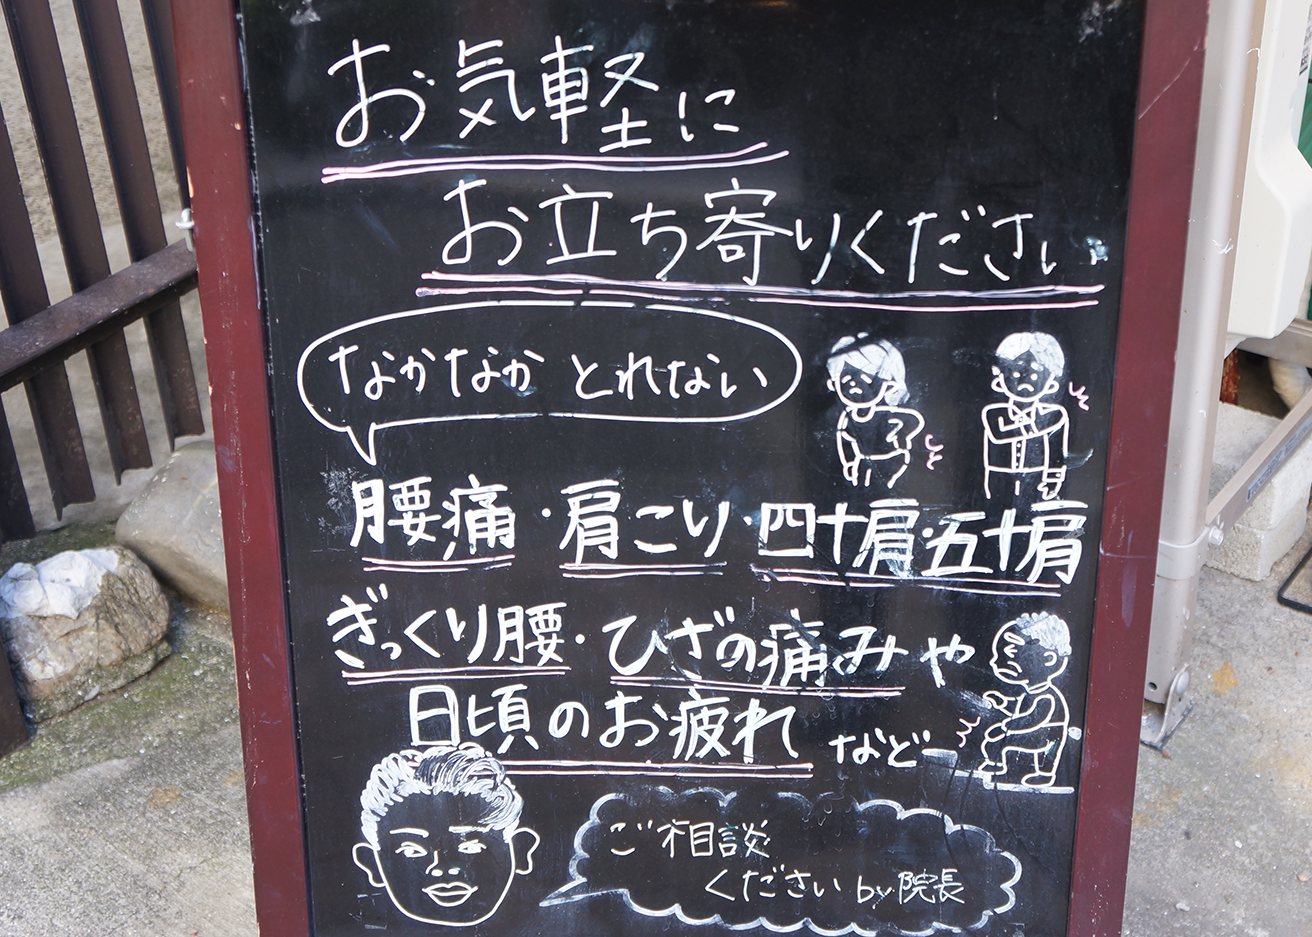 お気軽に
お立ち寄りください
なかなか とれない
腰痛・肩こり・四十肩・五十肩
ぎっくり腰・ひざの痛みや
日頃のお疲れ など
ご相談
ください by院長